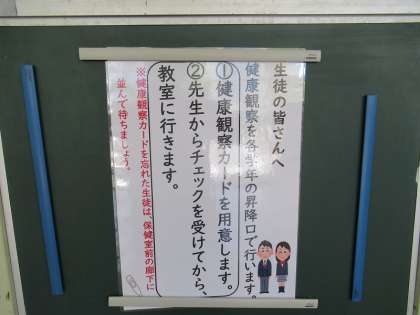 生徒の皆さんへ
健康観察を各学年の昇降口で行います。
①健康観察カードを用意します。
②先生からチェックを受けてから、
教室に行きます。
※健康観察カードを忘れた生徒は、保健室前の廊下に
並んで待ちましょう。